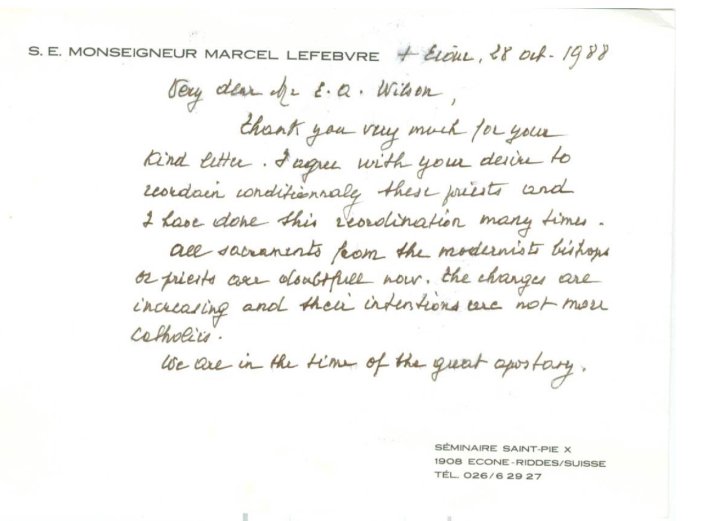 S. E. MONSEIGNEUR MARCEL LEFEBVRE + Ecône, 28 oct. 1988
Very dear Mr E. A. Wilson,
thank you very much for your
kind letter. I agree with your desire to
reordain conditionnaly these priests and
I have done this reordination many times.
All sacraments from the modernists bishops
or priests are doubtfull now. The changes are
increasing and their intentions are not more
catholics.
We are in the time of the great apostasy.
SÉMINAIRE SAINT-PIE X
1908 ECONE-RIDDES/SUISSE
TÉL. 026/6 29 27